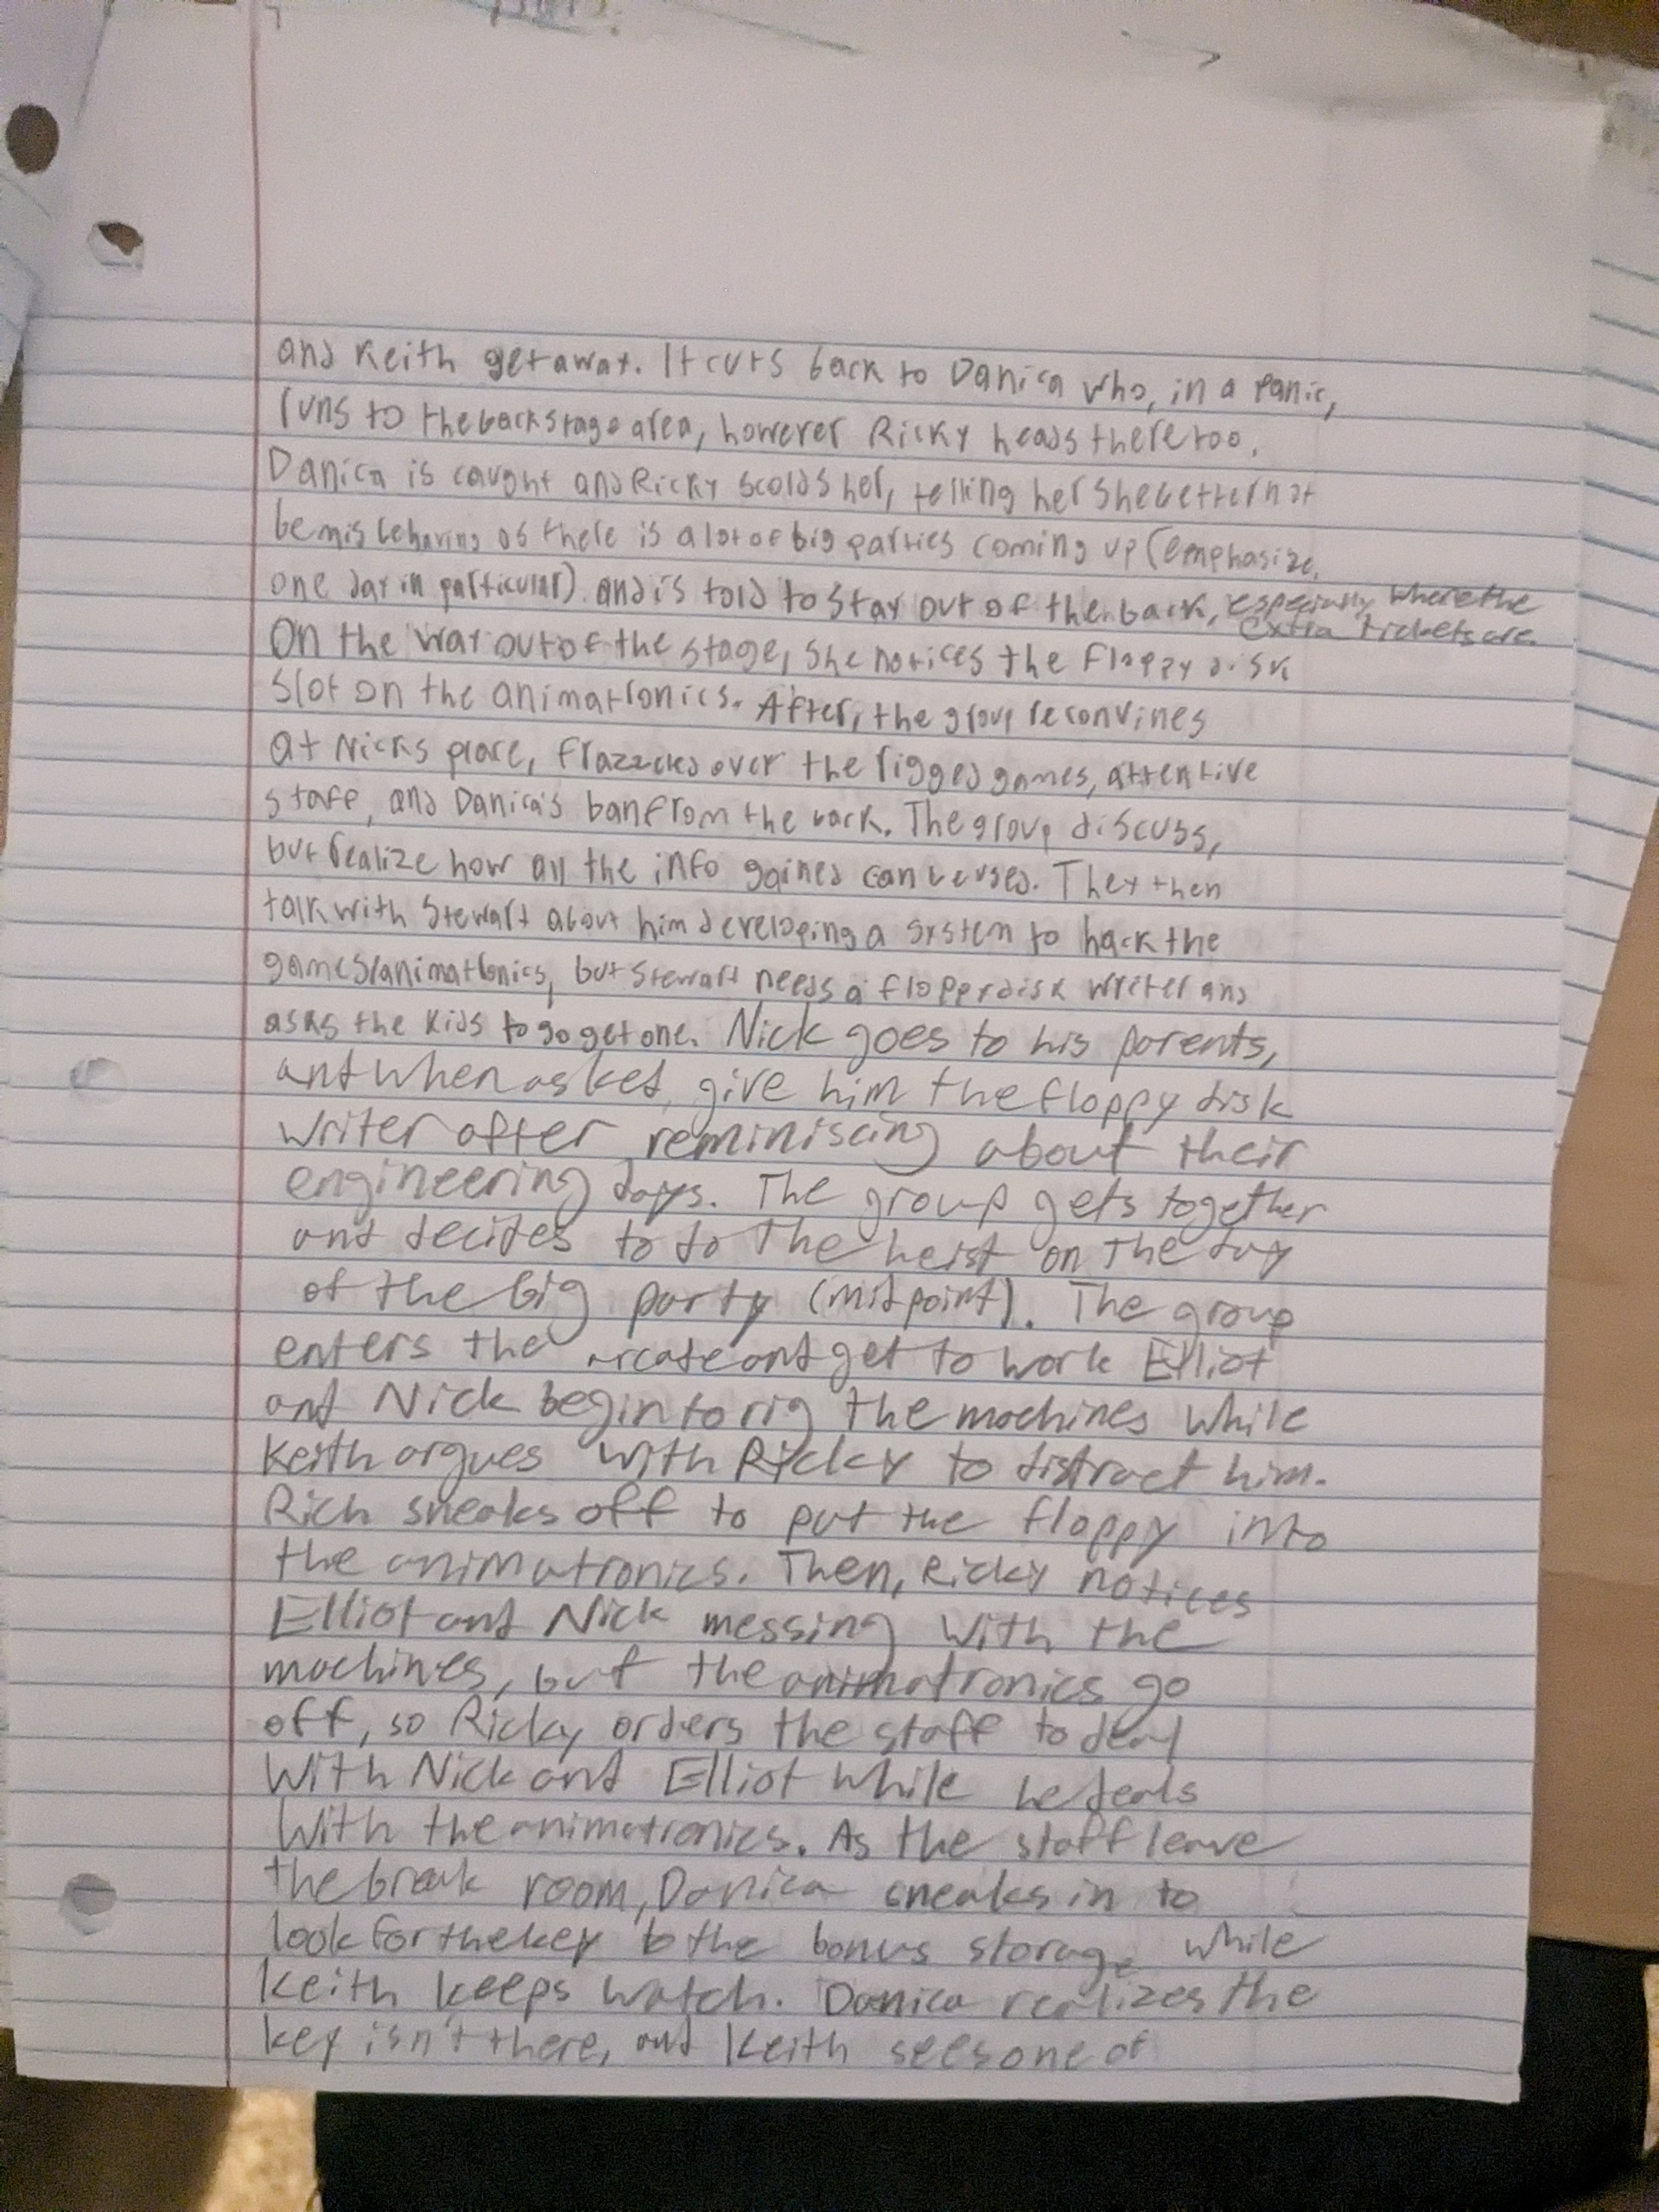 and Keith get away. It cuts back to Danica who, in a panic,
runs to the backstage area, however Ricky heads there too.
Danica is caught and Ricky scolds her, telling her she better not
be misbehaving as there is a lot of big parties coming up (emphasize
one day in particular) and is told to stay out of the back, especially where the
extra tickets are.
On the way out of the stage, she notices the floppy disk
slot on the animatronics. After, the group reconvines
at Nicks place, frazzeled over the rigged games, attentive
staff, and Danica's ban from the back. The group discuss,
but realize how all the info gained can be used. They then
talk with Stewart about him developing a system to hack the
games/animatronics, but Stewart needs a floppy disk writer and
asks the kids to go get one. Nick goes to his parents,
and when asked, give him the floppy disk
writer after reminiscing about their
engineering days. The group gets together
and decides to do the heist on the day
of the big party (midpoint). The group
enters the arcade and get to work Elliot
and Nick begin to rig the machines while
Keith argues with Ricky to distract him.
Rich sneaks off to put the floppy into
the animatronics. Then, Ricky notices
Elliot and Nick messing with the
machines, but the animatronics go
off, so Ricky orders the staff to deal
with Nick and Elliot while he deals
with the animatronics. As the staff leave
the break room, Danica sneaks in to
look for the key to the bonus storage while
Keith keeps watch. Danica realizes the
key isn't there, and Keith sees one of